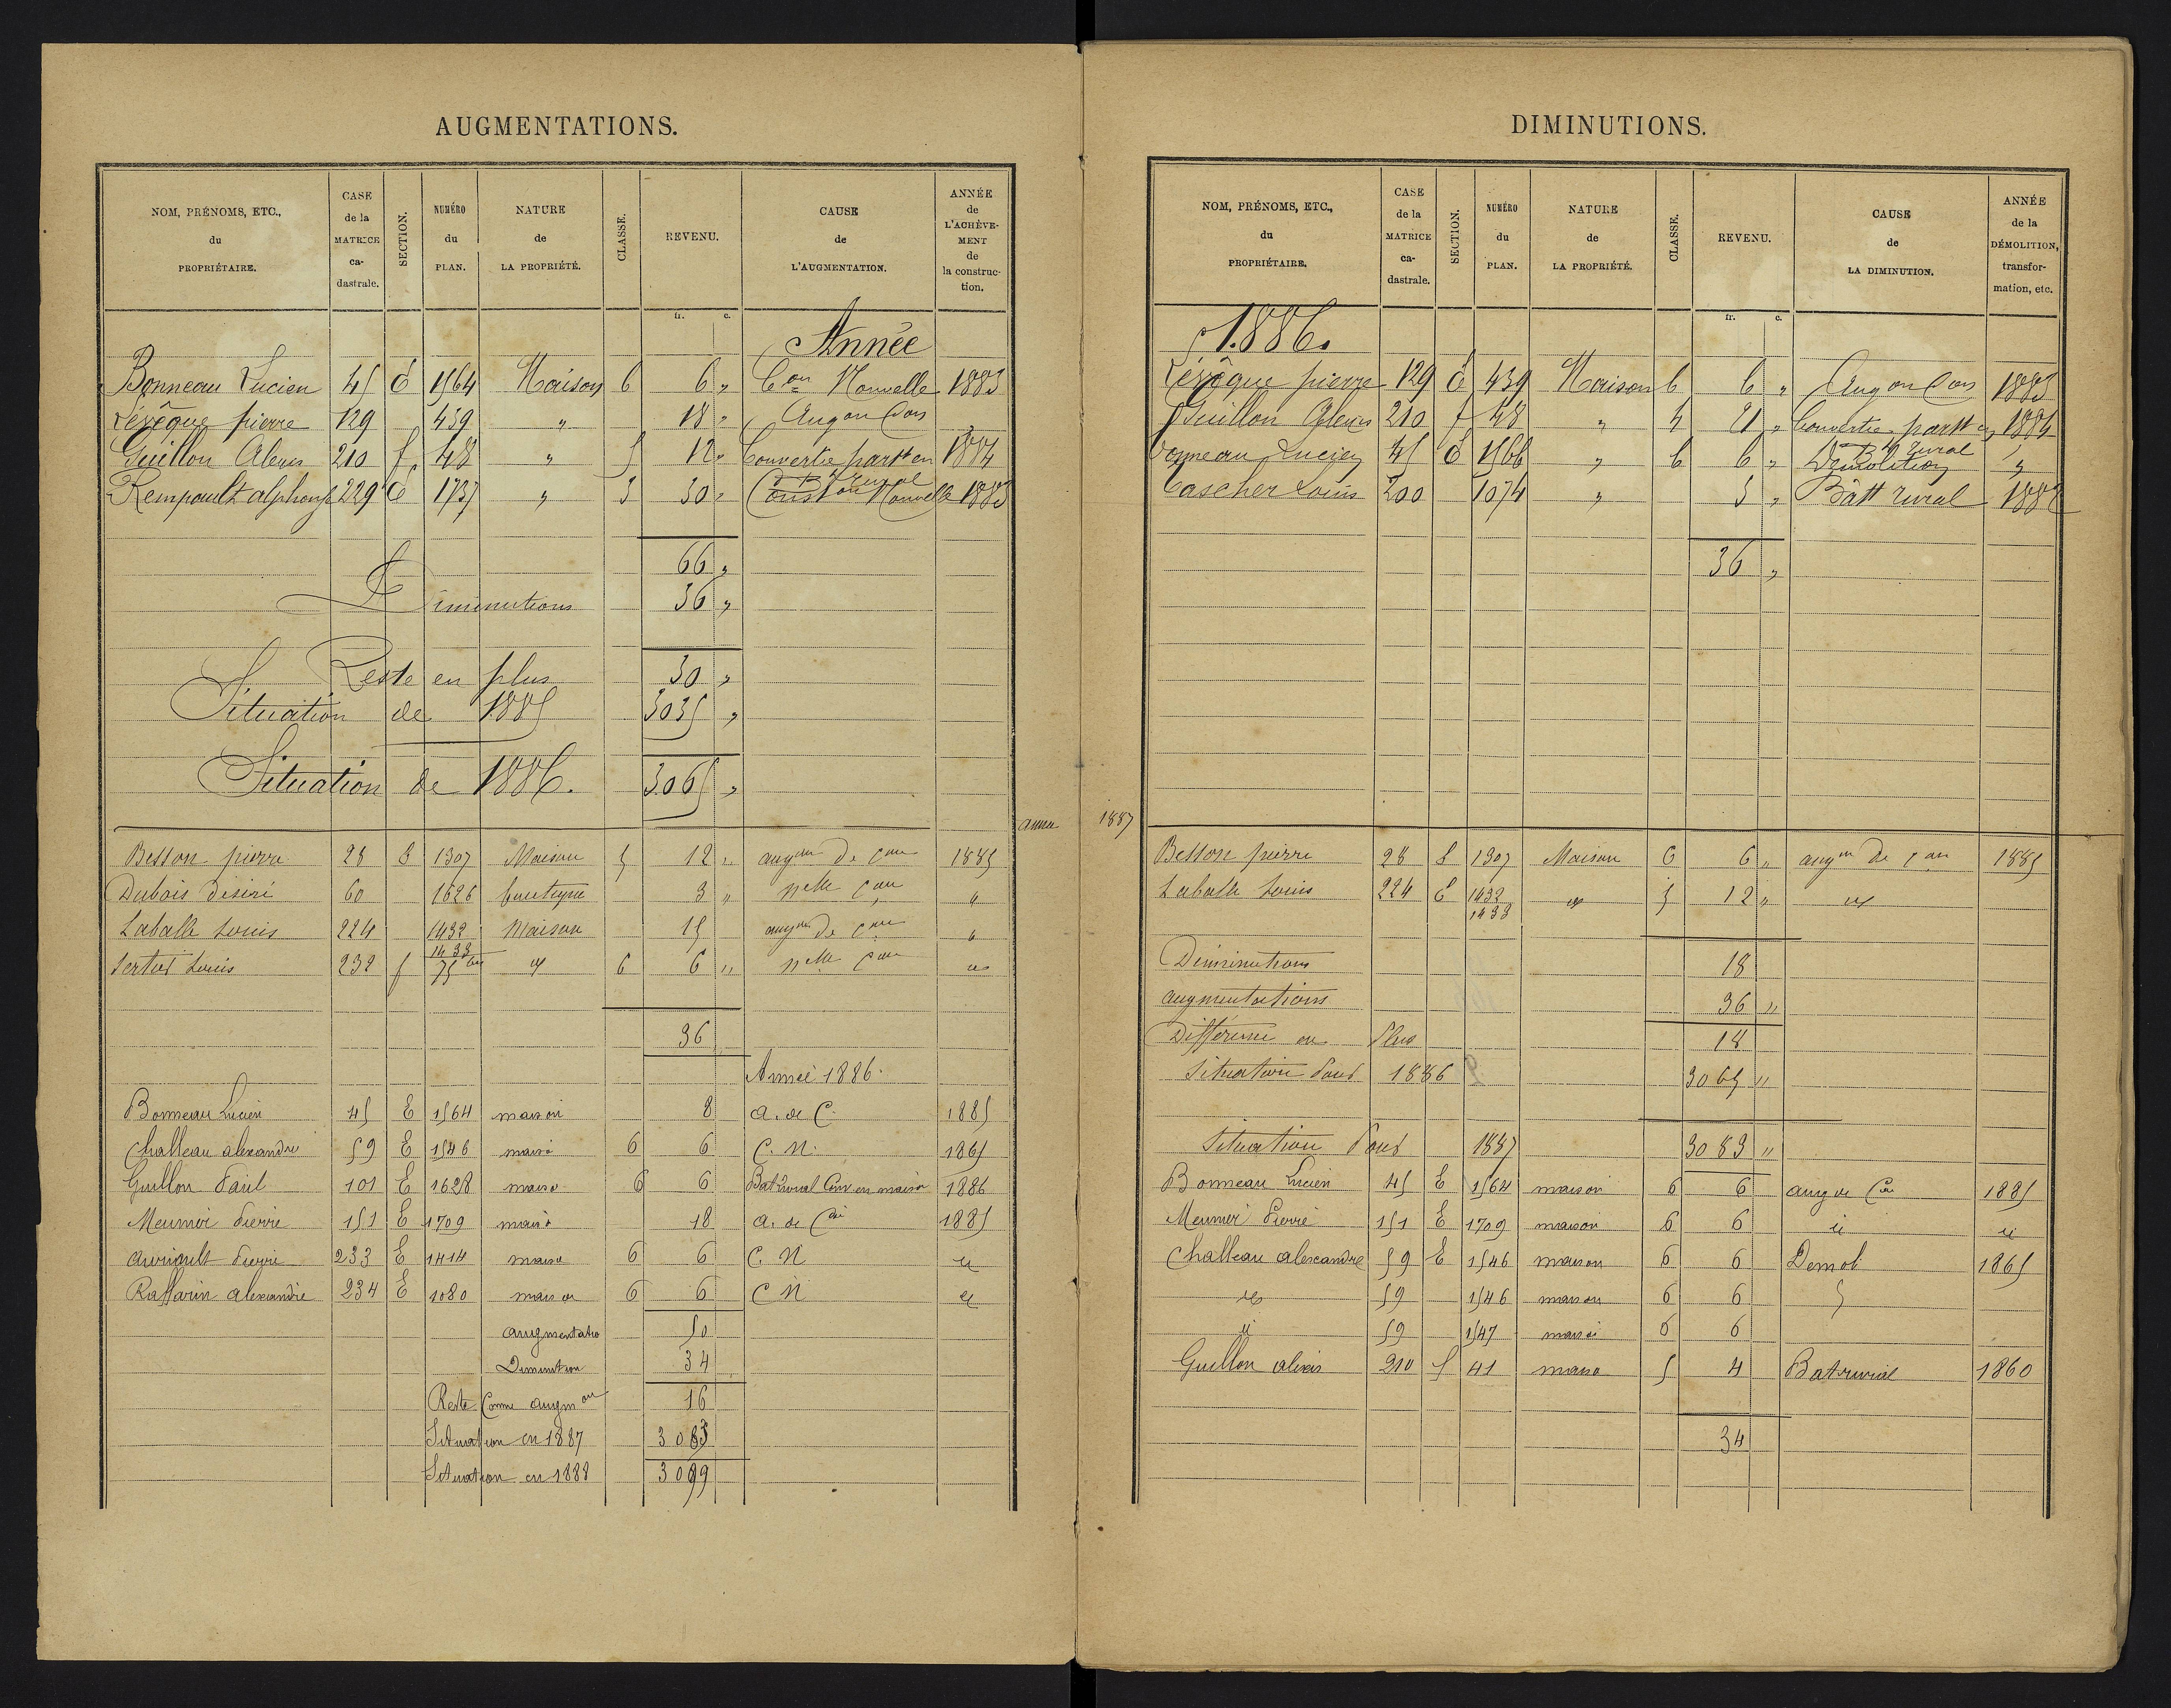 AUGMENTATIONS.
NOM, PRÉNOMS, ETC., du PROPRIÉTAIRE. CASE de la MATRICE ca- dastrale. SECTION. NUMÉRO du PLAN. NATURE de LA PROPRIÉTÉ. CLASSE. REVENU. CAUSE de L'AUGMENTATION. ANNÉE de L'ACHÈVE- MENT de la construc- tion.
fr. c.
Année
Bonneau Lucien 45 E 1564 Maison 6 6 " Con Nouvelle 1883
Lévêque pierre 129 439 " 18 " Aug on Con
Guillon Alexis 210 f 48 " 5 12 " Convertie part en 1884
Bt rural
Rempault alphonse 229 E 1737 " 5 30 " Const on Nouvelle 1883
66 "
Diminutions 36 "
Reste en plus 30 "
Situation de 1885 3035 "
Situation de 1886. 3.065 "
annee
Besson pierre 28 1307 Maison 5 12 " augon de con 1885
Dubois désiré 60 1626 3 " nelle con "
Laballe Louis 224 1432 Maison 15 augon de con "
1433
Louis 232 f 75 bis " 6 6 " nelle con "
36
Année 1886.
Bonneau Lucien 45 E 1564 maison 8 a. de C. 1885
Challeau alexandre 59 E 1546 maison 6 6 C. N. 1865
Guillon Paul 101 E 1628 maison 6 6 Bat rural Conv en maison 1886
Meunier Pierre 151 E 1709 maison 18 a. de Con 1885
Pierre 233 E 1414 maison 6 6 C. N "
Raffarin alexandre 234 E 1080 maison 6 6 C N "
augmentatio 50
Diminution 34
Reste Comme augmon 16
Situation en 1887 3083
Situation en 1888 3099
DIMINUTIONS.
NOM, PRÉNOMS, ETC., du PROPRIÉTAIRE. CASE de la MATRICE ca- dastrale. SECTION. NUMÉRO du PLAN. NATURE de LA PROPRIÉTÉ. CLASSE. REVENU. CAUSE de LA DIMINUTION. ANNÉE de la DÉMOLITION, transfor- mation, etc.
fr. c.
1886.
Lévêque pierre 129 E 439 Maison 6 6 " Aug on Con 1883
Guillon Alexis 210 f 48 " 4 21 " Convertie part en 1884
Bt rural
Bonneau Lucien 45 E 1566 " 6 6 " Démolition "
Cascher Louis 200 1074 " 5 3 " Bâtt rural 1882
36 "
1887
Besson pierre 28 1307 Maison 6 6 " augon de con 1885
Laballe Louis 224 E 1432 " 5 12 " "
1433
Diminutions 18
augmentations 36 "
Différence en Plus 18
Situation Pour 1886 3065 "
Situation Pour 1887 3083 "
Bonneau Lucien 45 E 1564 maison 6 6 aug de Con 1885
Meunier Pierre 151 E 1709 maison 6 6 " "
Challeau alexandre 59 E 1546 maison 6 6 Demol 1865
" 59 1546 maison 6 6
" 59 1547 maison 6 6
Guillon alexis 210 f 41 maison 5 4 Bat rural 1860
34